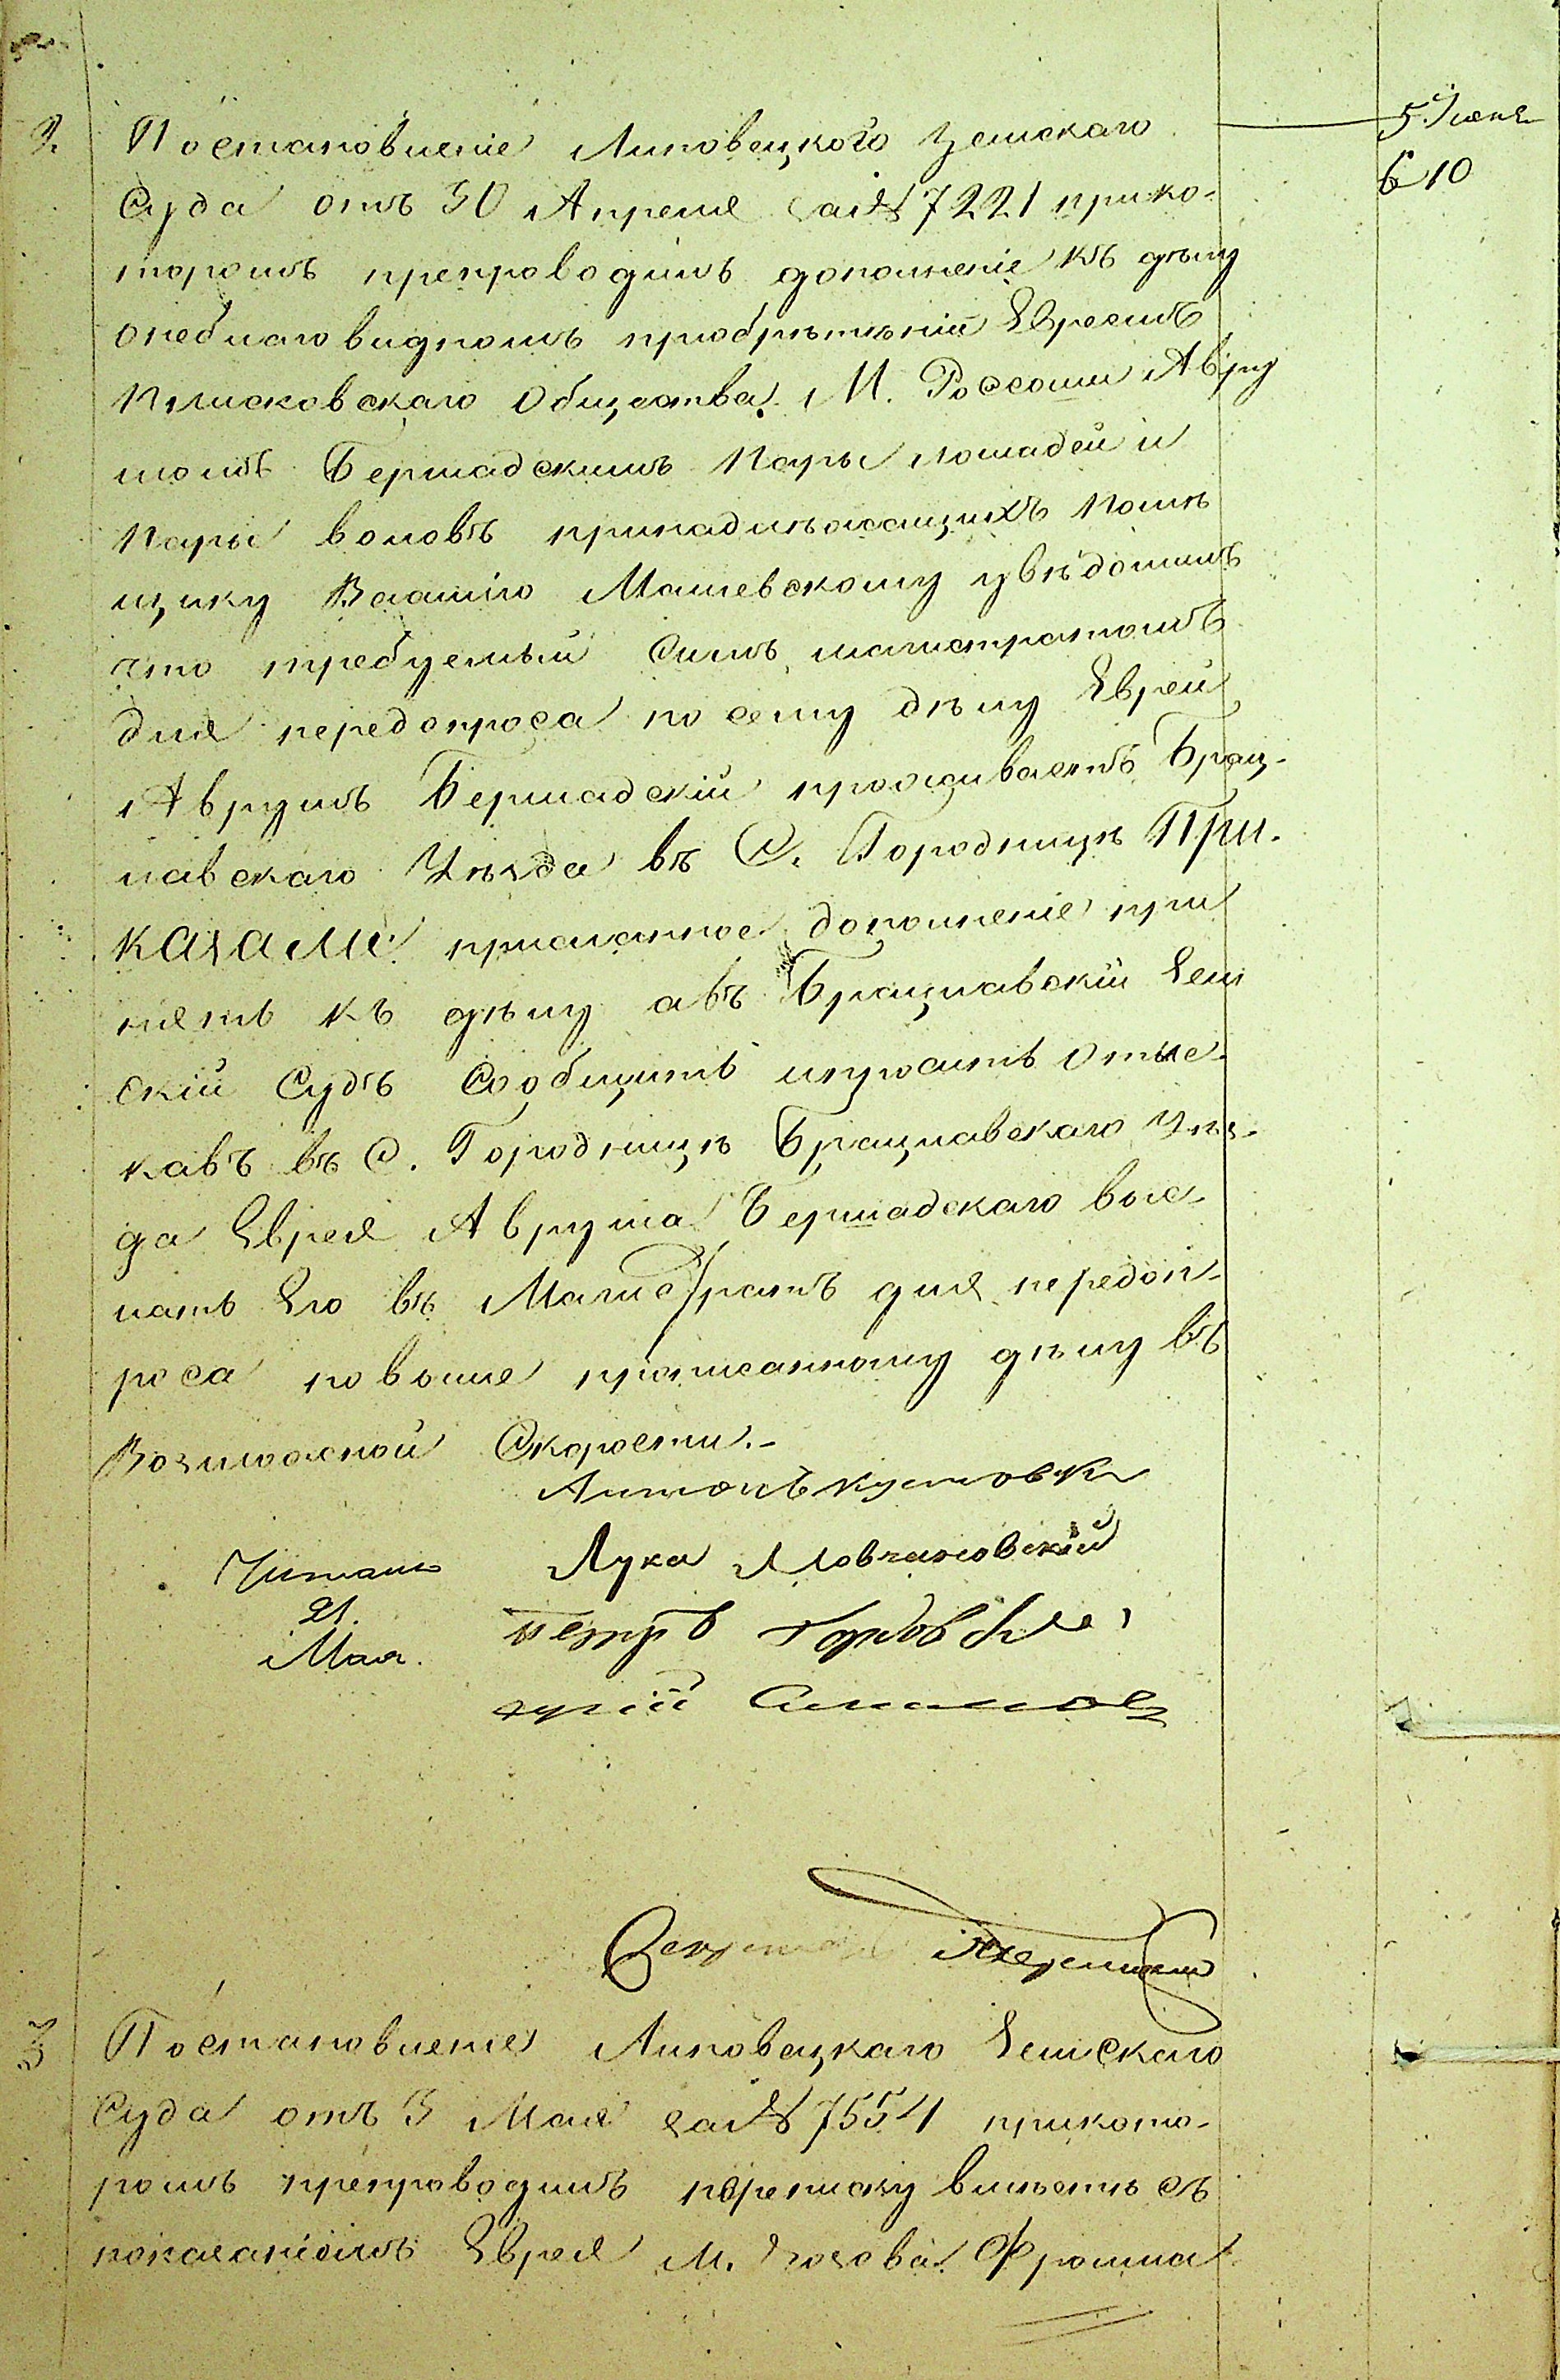 2. Постановленіе Липовецкого Земскаго
5 Іюня
610
Суда отъ 30 Апреля за № 7221 прико-
торомъ препроводилъ дополненіе къ делу
онеблаговидномъ пріобрѣтеніи Евреемъ
Плисковскаго Общества М. Россоши Авру
момъ Бершадскимъ пары лошадей и
пары воловъ принадлѣжащихъ помѣ
щику Машевскому увѣдомилъ
что требуемый симъ магистратомъ
для передопроса по сему дѣлу Еврей
Аврумъ Бершадскій проживаетъ Брац-
лавскаго Уѣзда въ С. Городницѣ При-
казали: присланное дополненіе при
нять къ дѣлу авъ Брацлавскій Зем
скій Судъ Сообщить ипросить Отыс-
кавъ въ С. Городницѣ Брацлавскаго Уѣз-
да Еврея Аврума Бершадскаго высе-
лать Его въ Магистратъ для передоп-
роса повыше прописанному дѣлу въ
Возможной Скорости.-
Антонъ
Лука Мовчановскій
Читано
21.
Мая.
Петръ
Секретарь
3 Постановленіе Липовецкаго Земскаго
Суда отъ 3 Мая за № 7554 прикото-
ромъ препроводилъ переписку вмѣстѣ съ
показаніемъ Еврея м. Фроима